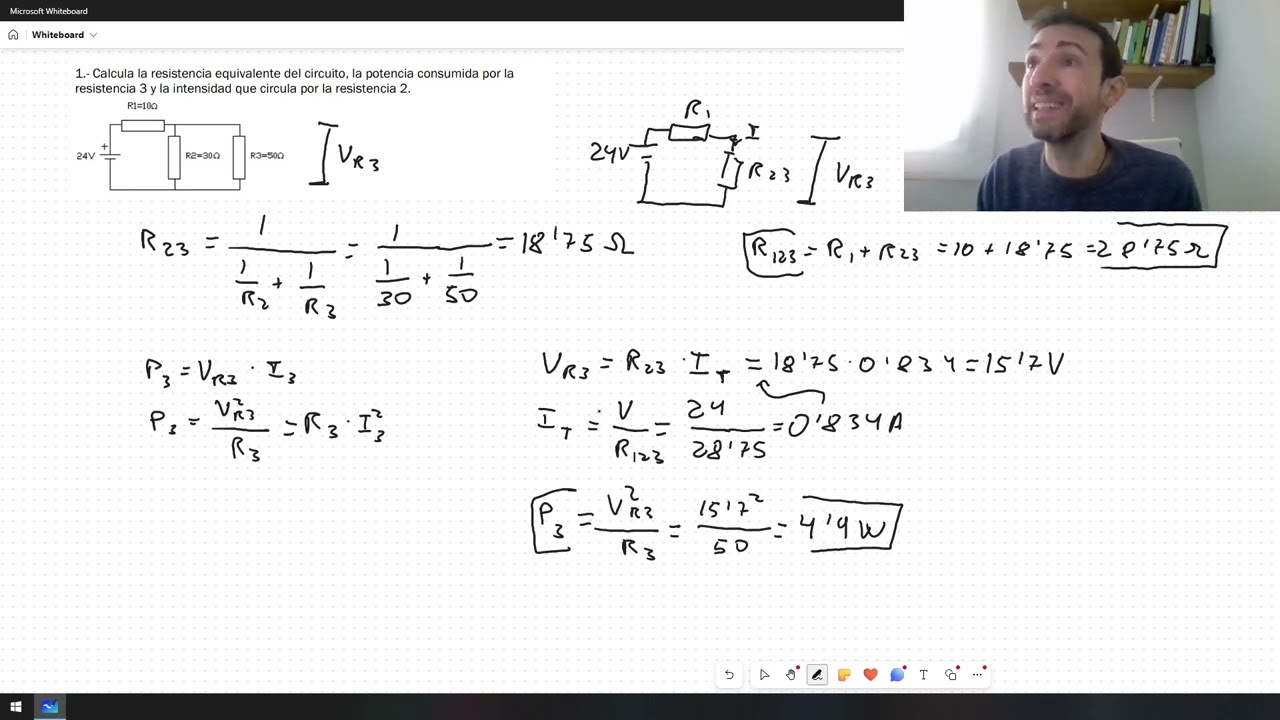 Microsoft Whiteboard
Whiteboard
1.- Calcula la resistencia equivalente del circuito, la potencia consumida por la
resistencia 3 y la intensidad que circula por la resistencia 2.
R1=10Ω
24V
+
R2=30Ω
R3=50Ω
V_R3
R1
I
24V
R23
V_R3
R23 = 1/(1/R2 + 1/R3) = 1/(1/30 + 1/50) = 18'75 Ω
R123 = R1 + R23 = 10 + 18'75 = 28'75 Ω
P3 = V_R3 · I3
P3 = V²_R3/R3 = R3 · I²3
V_R3 = R23 · I_T = 18'75 · 0'834 = 15'7 V
I_T = V/R123 = 24/28'75 = 0'834 A
P3 = V²_R3/R3 = 15'7²/50 = 4'9 W
T